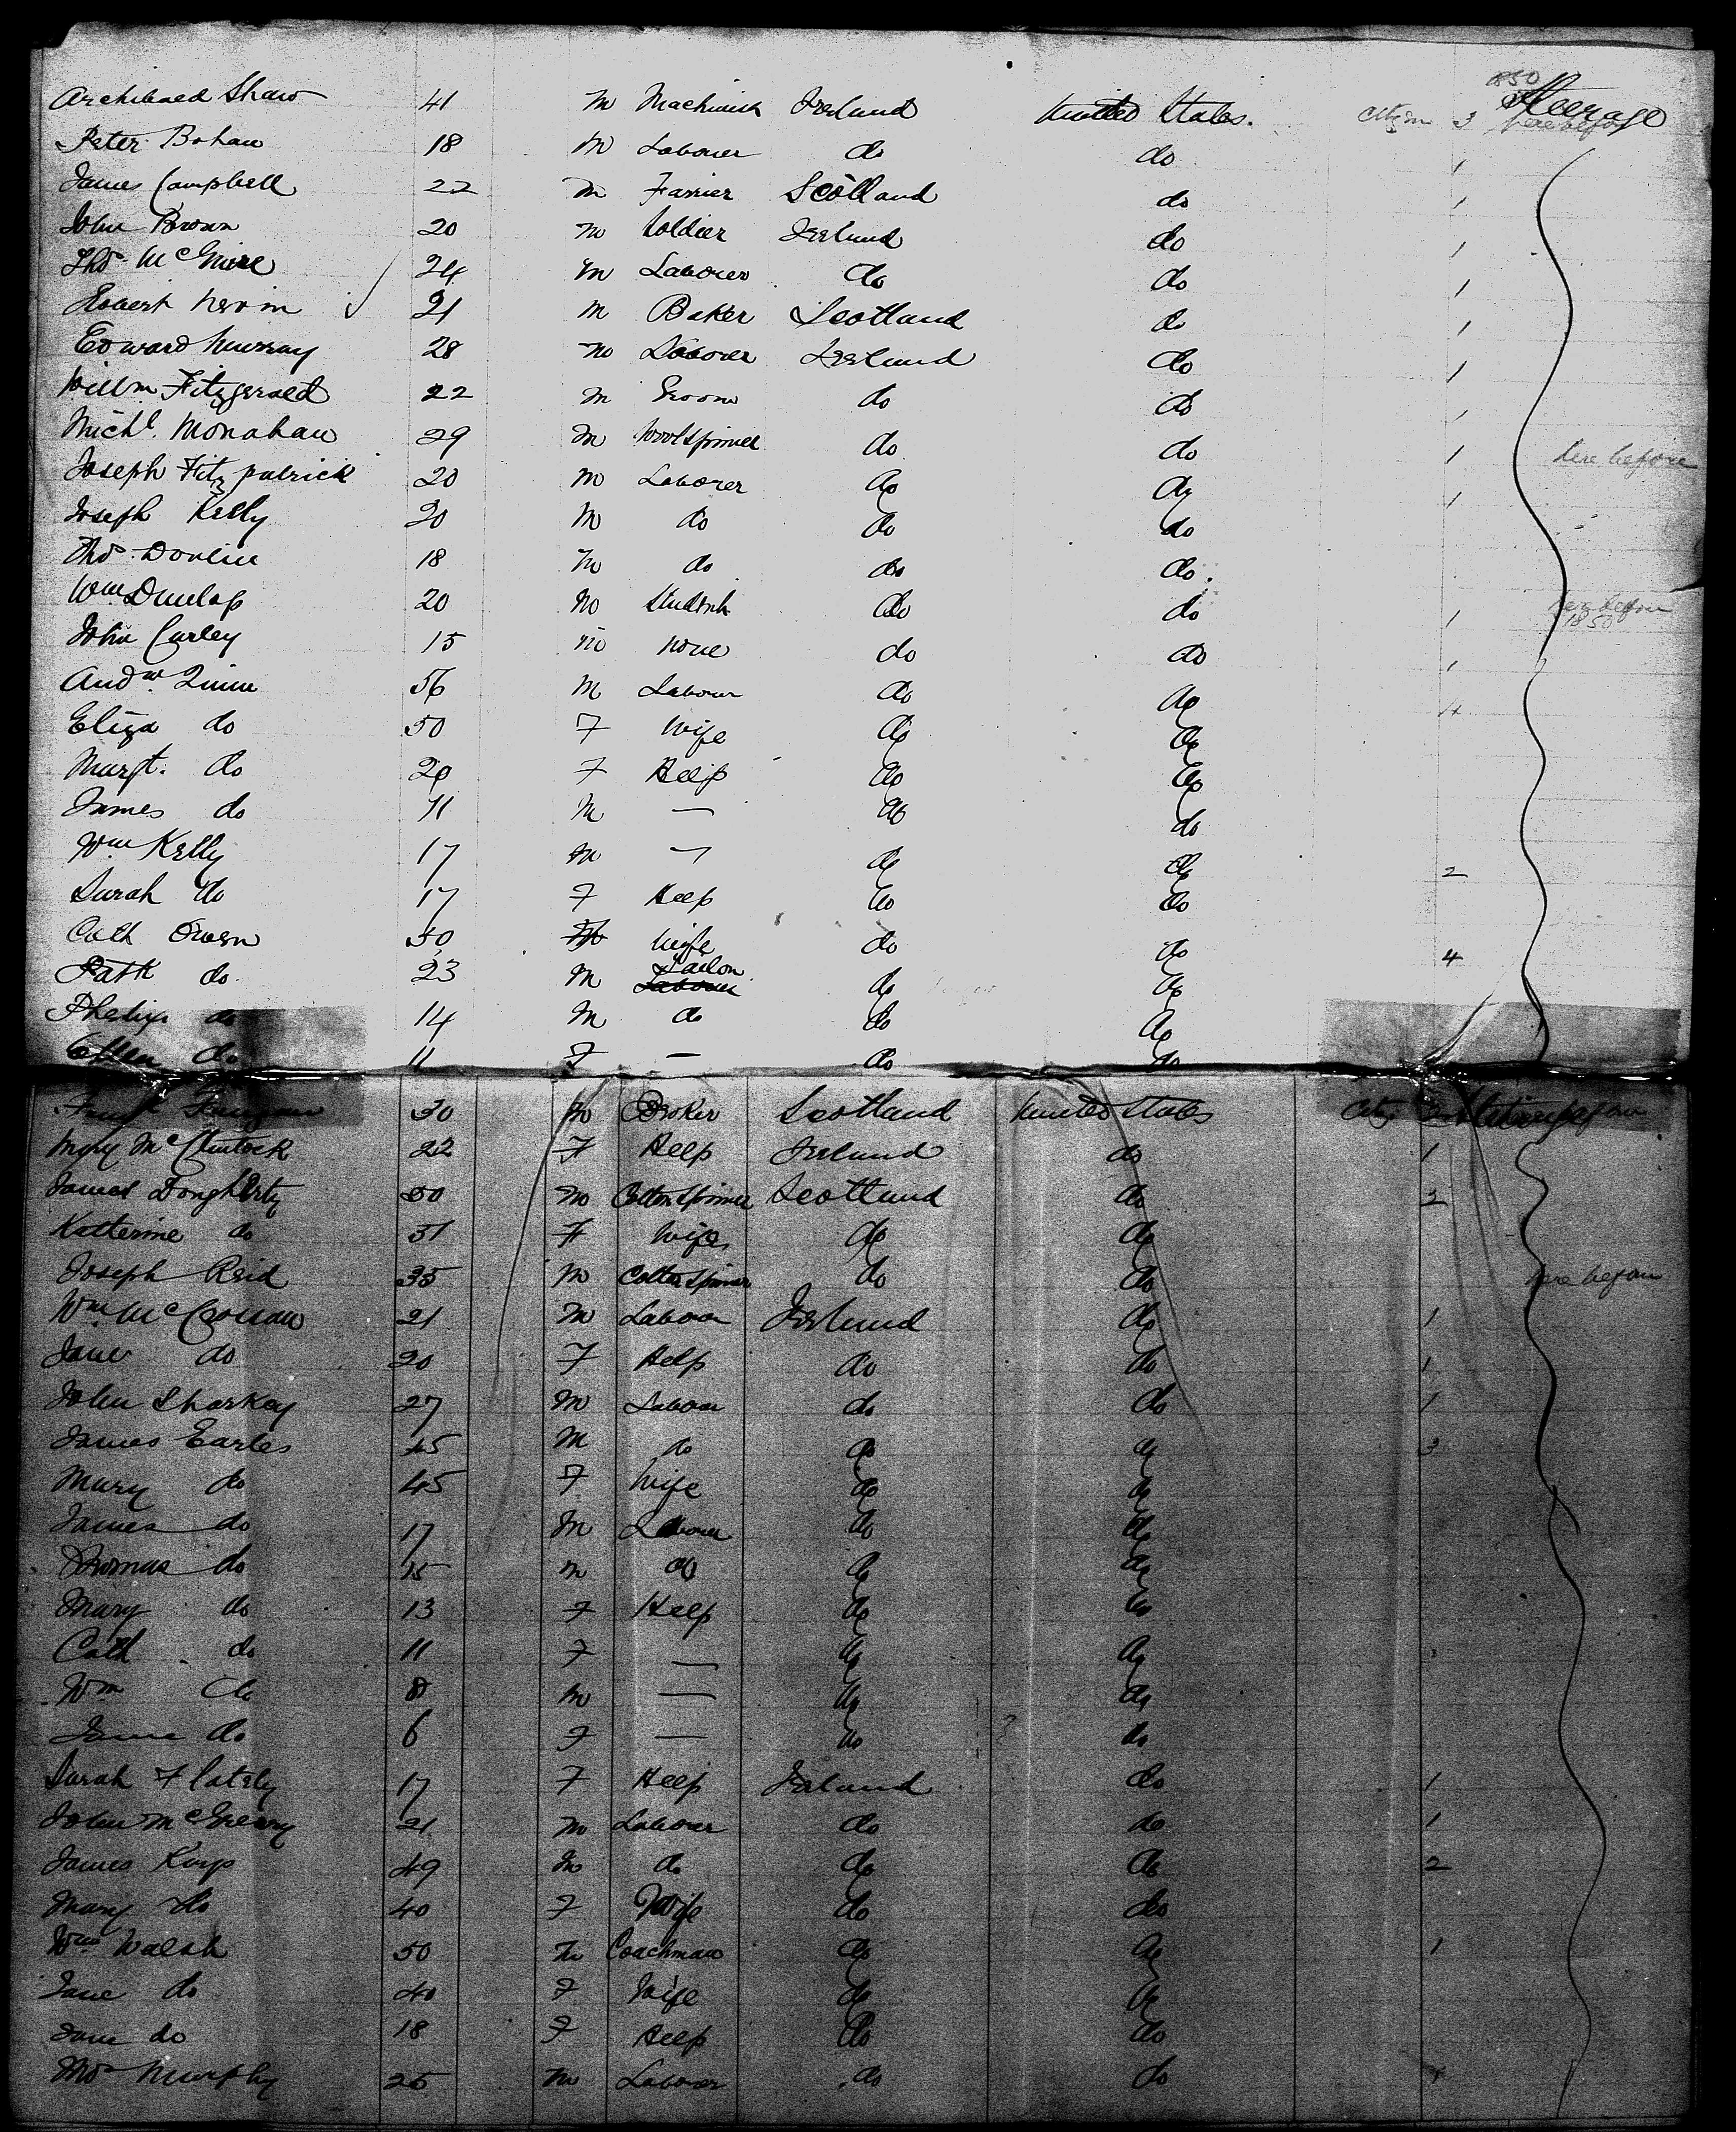 Archibald Shaw 41 M Machinist Ireland United States. Citizen 3 1850 Steerage here before
Peter Bohan 18 M Labourer do do 1
James Campbell 22 m Farrier Scotland do 1
John Brown 20 m Soldier Ireland do 1
Thos McGuire 24 m Labourer do do 1
Robert Nevin 21 m Baker Scotland do 1
Edward Murray 28 m Laborer Ireland do 1
Willm Fitzgerald 22 m Groom do do 1
Michl. Monahan 29 m Woolspinner do do 1 here before
Joseph Fitzpatrick 20 m Laborer do do 1
Joseph Kelly 20 M do do do
Thos Donlin 18 m do do do.
Wm Dunlap 20 m Student do do 1 here before 1850
John Curley 15 m none do do 1
Andw. Quinn 56 M Labour do do 4
Eliza do 50 F Wife do do
Margt. do 20 F Help do do
James do 11 M — do do
Wm Kelly 17 m — do do 2
Sarah do 17 F Help do do
Cath Owen 50 F Wife do do 4
Patk do 23 M Tailor Labourer do do
Phelix do 14 M do do do
Ellen do 11 F — do do
30 m Broker Scotland United States Citz
Mary McClintock 22 F Help Ireland do 1
James Dougherty 50 m Cotton Spinner Scotland do 2
Katherine do 51 F Wife do do
Joseph Reid 35 M Cotton Spinner do do here before
Wm McCrossan 21 M Labour Ireland do 1
Jane do 20 F Help do do 1
John Sharkey 27 M Labour do do 1
James Earles 45 M do do do 3
Mary do 45 F Wife do do
James do 17 M Labourer do do
Thomas do 15 m do do do
Mary do 13 F Help do do
Cath do 11 F — do do
Wm do 8 m — do do
Jane do 6 F — do do
Sarah Flately 17 F Help Ireland do 1
John McGreavy 21 m Labourer do do 1
James Keys 49 m do do do 2
Mary do 40 F Wife do do
Wm Walsh 50 m Coachman do do 1
Jane do 40 F Wife do do
Jane do 18 F Help do do
Thos Murphy 25 m Labourer do do 1